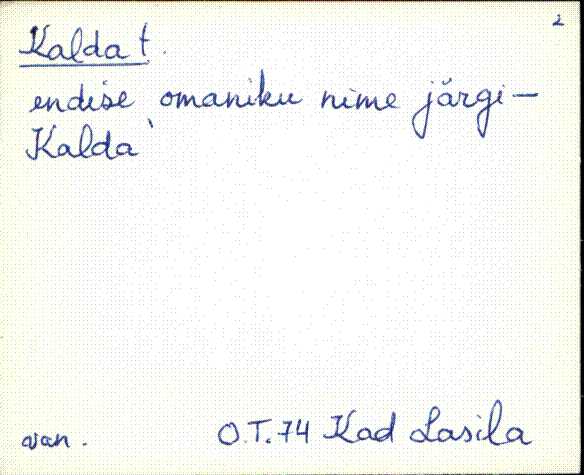 2
Kalda t.
endise omaniku nime järgi –
Kalda
van. O.T. 74 Kad Lasila